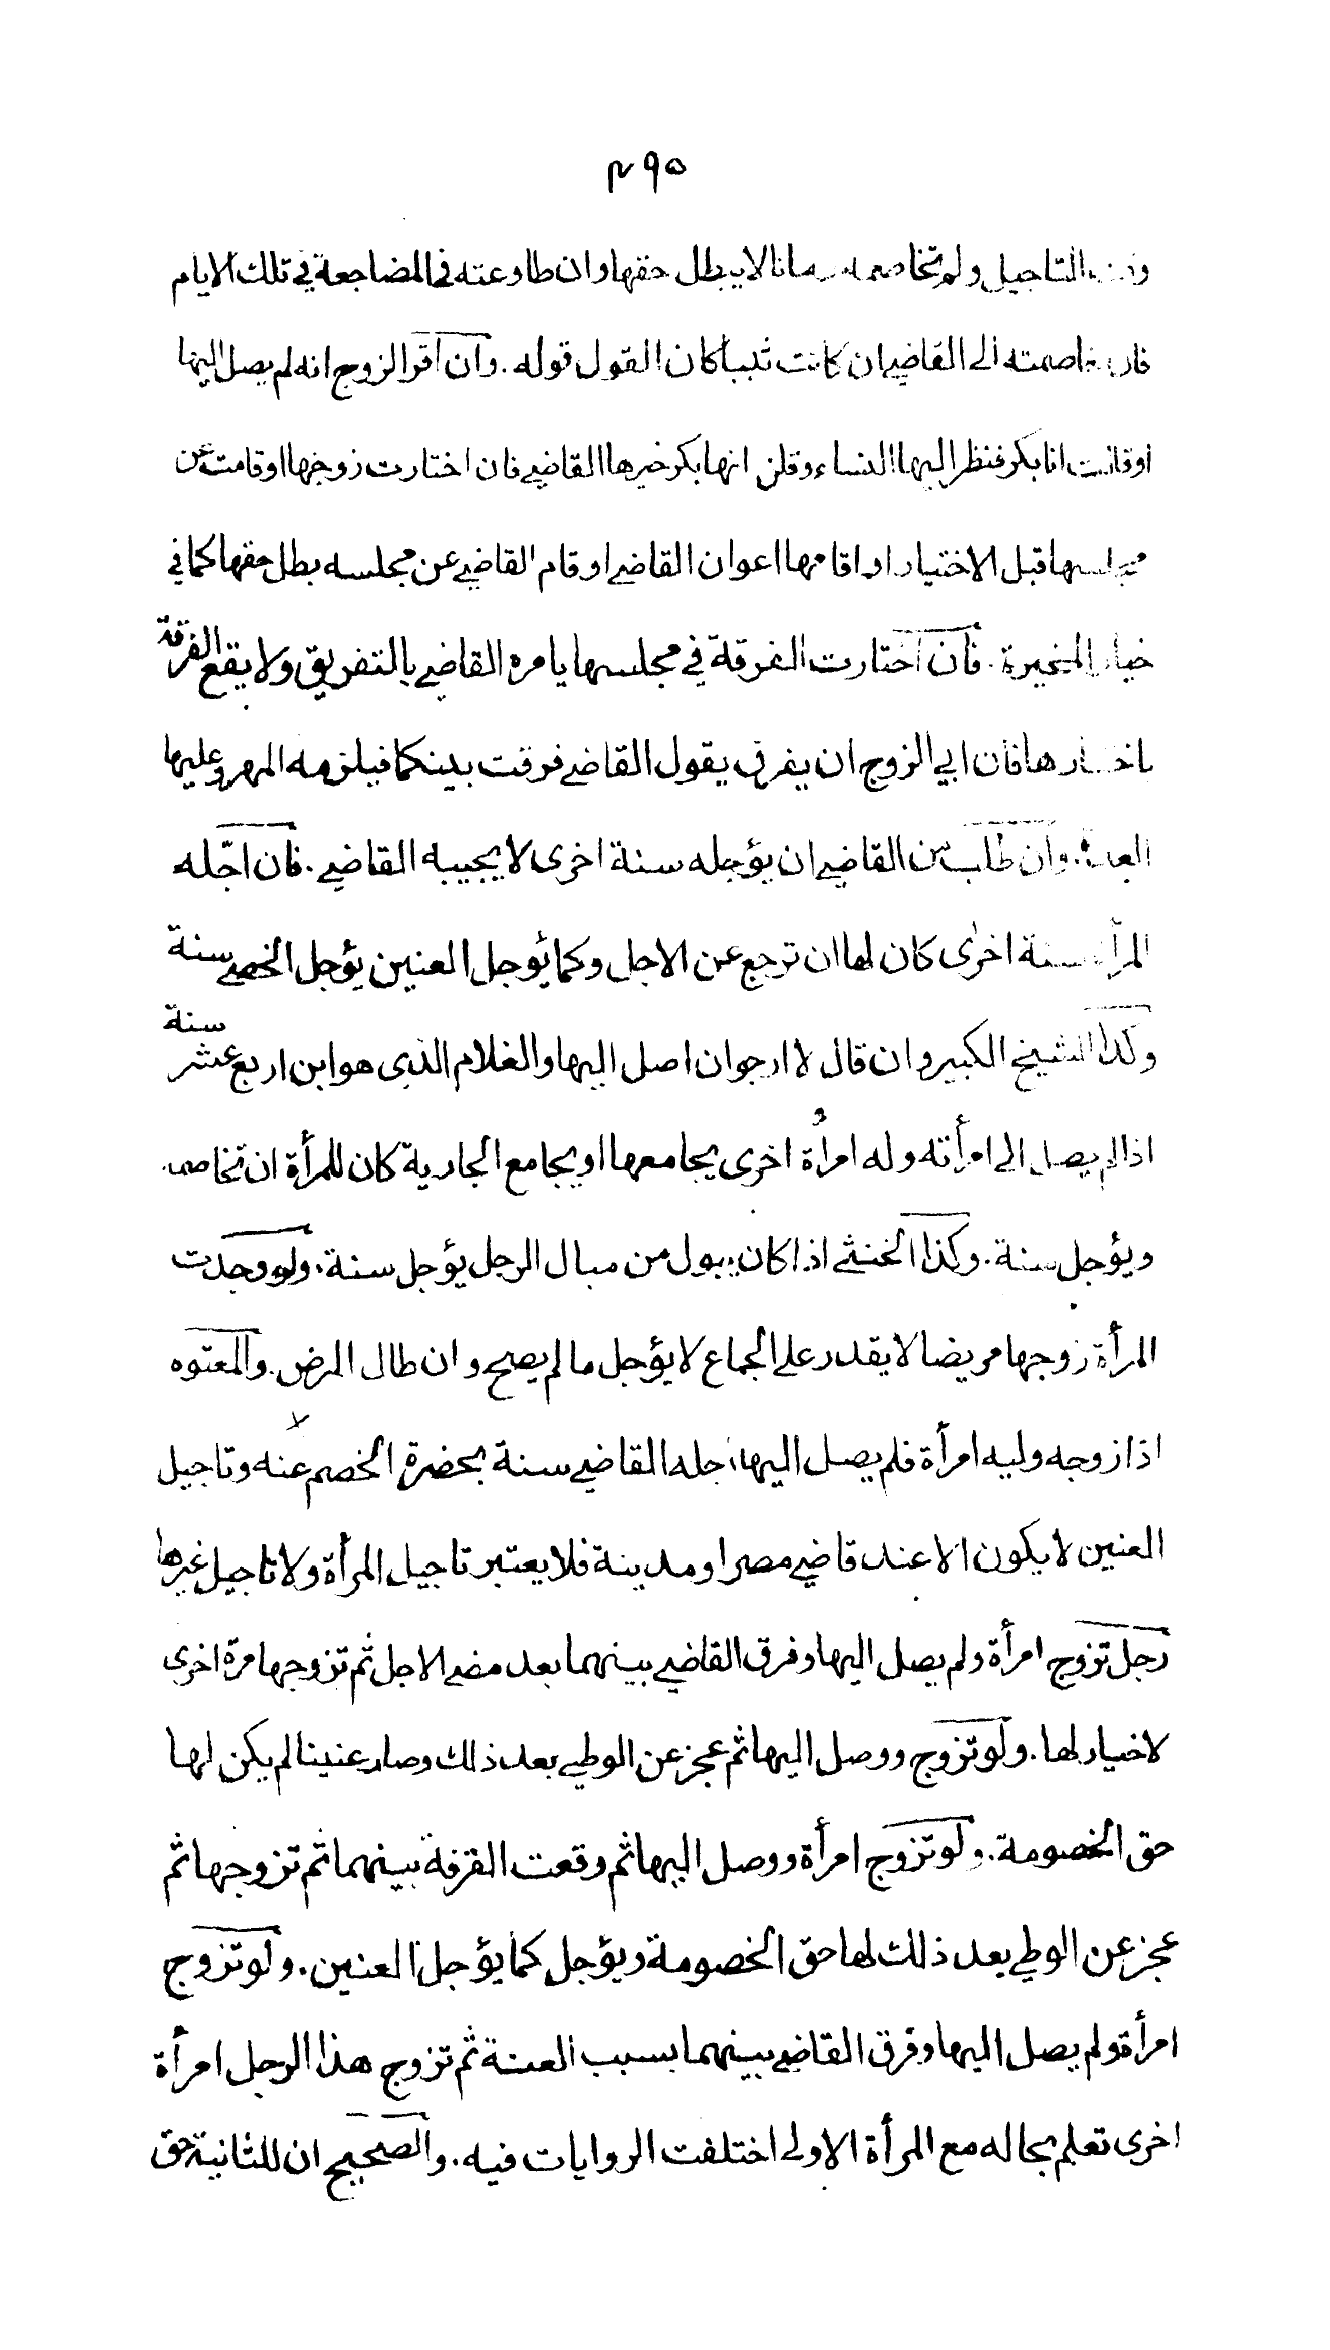 ٤٩٥
التاجيل ولم تخاصمه زمانا لا يبطل حقها وان طاوعته في المضاجعة في تلك الايام
فان خاصمته الى القاضي ان كانت ثيبا كان القول قوله . وان اقر الزوج انه لم يصل اليها
او قالت انا بكر فنظر اليها النساء وقلن انها بكر خيرها القاضي فان اختارت زوجها او قامت عن
مجلسها قبل الاختيار او اقامها اعوان القاضي او قام القاضي عن مجلسه بطل حقها كما في
خيار المخيرة . فان اختارت الفرقة في مجلسها يامره القاضي بالتفريق ولا يقع الفرقة
باختيارها فان ابي الزوج ان يفرق يقول القاضي فرقت بينكما فيلزمه المهر وعليها
العدة . وان طلب من القاضي ان يؤجله سنة اخرى لا يجيبه القاضي . فان اجّله
المرأة سنة اخرى كان لها ان ترجع عن الاجل وكما يؤجل العنين يؤجل الخصي سنة
وكذا الشيخ الكبير وان قال لا ارجو ان اصل اليها والغلام الذى هو ابن اربع عشر سنة
اذا لم يصل الى امرأته وله امرأة اخرى يجامعها او يجامع الجارية كان للمرأة ان تخاصمه
ويؤجل سنة . وكذا الخنثى اذا كان يبول من مبال الرجل يؤجل سنة . ولو وجدت
المرأة زوجها مريضا لا يقدر على الجماع لا يؤجل ما لم يصح وان طال المرض . والمعتوه
اذا زوجه وليه امرأة فلم يصل اليها اجله القاضي سنة بحضرة الخصم عنه وتاجيل
العنين لا يكون الا عند قاضي مصر او مدينة فلا يعتبر تاجيل المرأة ولا تاجيل غيرها
رجل تزوج امرأة ولم يصل اليها وفرق القاضي بينهما بعد مضي الاجل ثم تزوجها مرة اخرى
لا خيار لها . ولو تزوج ووصل اليها ثم عجز عن الوطي بعد ذلك وصار عنينا لم يكن لها
حق الخصومة . ولو تزوج امرأة ووصل اليها ثم وقعت الفرقة بينهما ثم تزوجها ثم
عجز عن الوطي بعد ذلك لها حق الخصومة ويؤجل كما يؤجل العنين . ولو تزوج
امرأة ولم يصل اليها وفرق القاضي بينهما بسبب العنة ثم تزوج هذا الرجل امرأة
اخرى تعلم بحاله مع المرأة الاولى اختلفت الروايات فيه . والصحيح ان للثانية حق